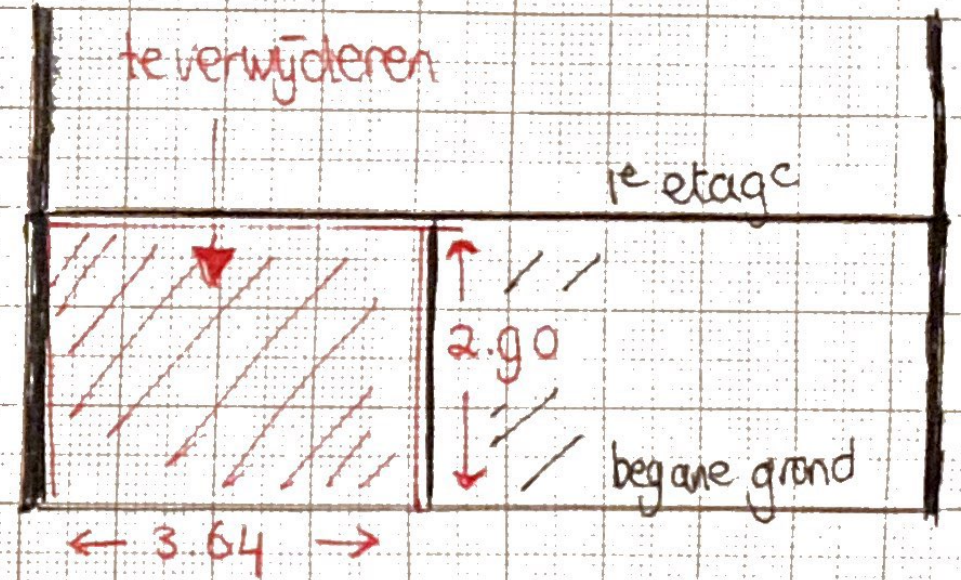 te verwijderen
1e etage
2.90
begane grond
3.64